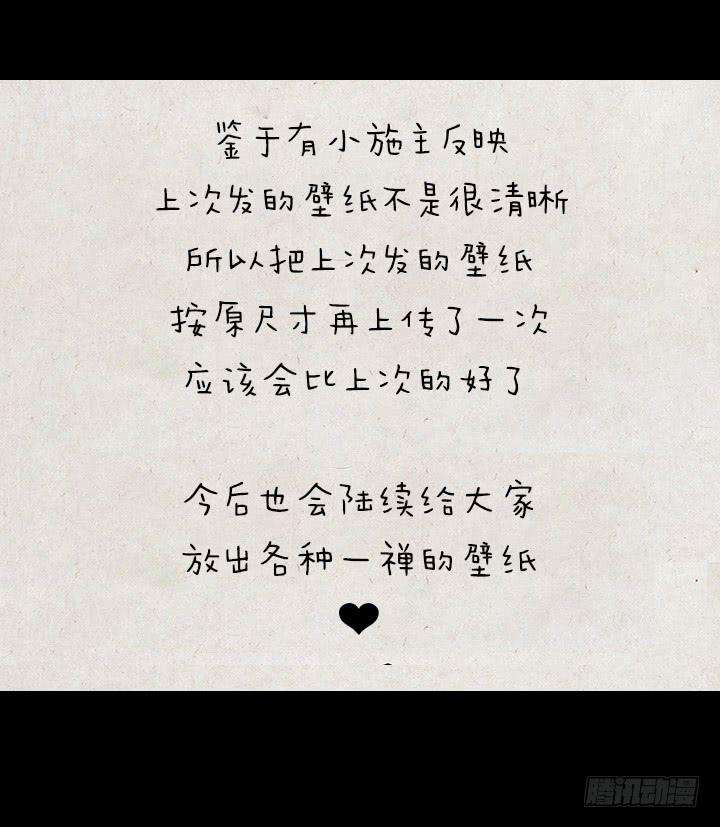 鉴于有小施主反映
上次发的壁纸不是很清晰
所以把上次发的壁纸
按原尺寸再上传了一次
应该会比上次的好了
今后也会陆续给大家
放出各种一禅的壁纸
腾讯动漫